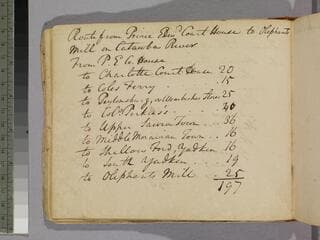 Route from Prince Edwd Court House to Oliphants
Mill on Catawba River
From P. E. Ct. House
to Charlotte Court House 20
to Coles Ferry . 15
to Pittsylvania 25
to Colo. Perkins's . 40
to Upper Saura Town ... 36
to Middle Moravian Town .. 16
to Shallow Ford, Yadkin 16
to South Yadkin ... 19
to Oliphants Mill .. 25
197